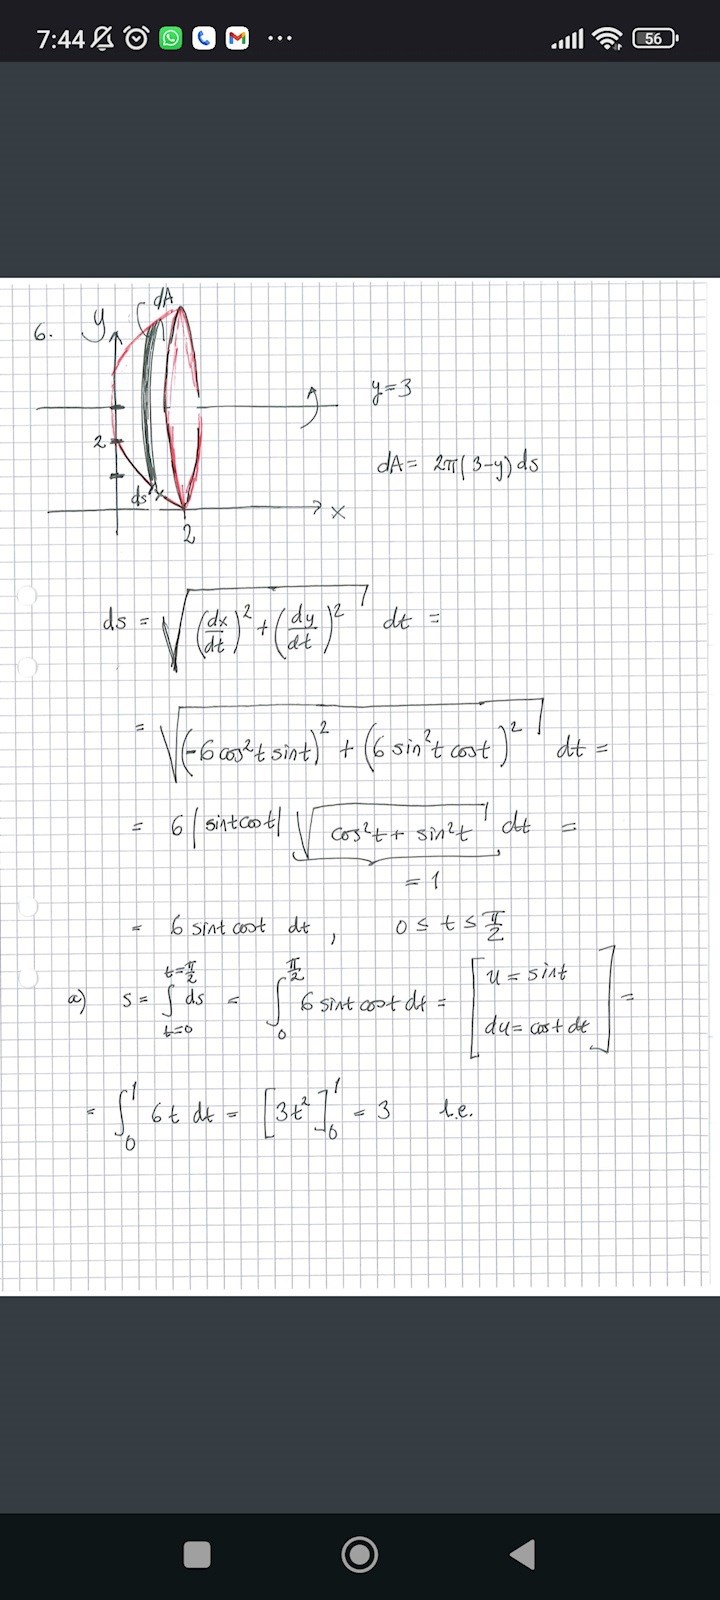 7:44 ... 56
6. y dA
y=3
2
dA = 2π(3-y)ds
ds
x
2
ds = √((dx/dt)² + (dy/dt)²) dt =
= √((-6cos²t sint)² + (6 sin²t cost)²) dt =
= 6|sint cost| √(cos²t + sin²t) dt =
= 1
= 6 sint cost dt, 0 ≤ t ≤ π/2
a) s = ∫_{t=0}^{t=π/2} ds = ∫_0^{π/2} 6 sint cost dt = [u = sint
du = cost dt] =
= ∫_0^1 6t dt = [3t²]_0^1 = 3 l.e.